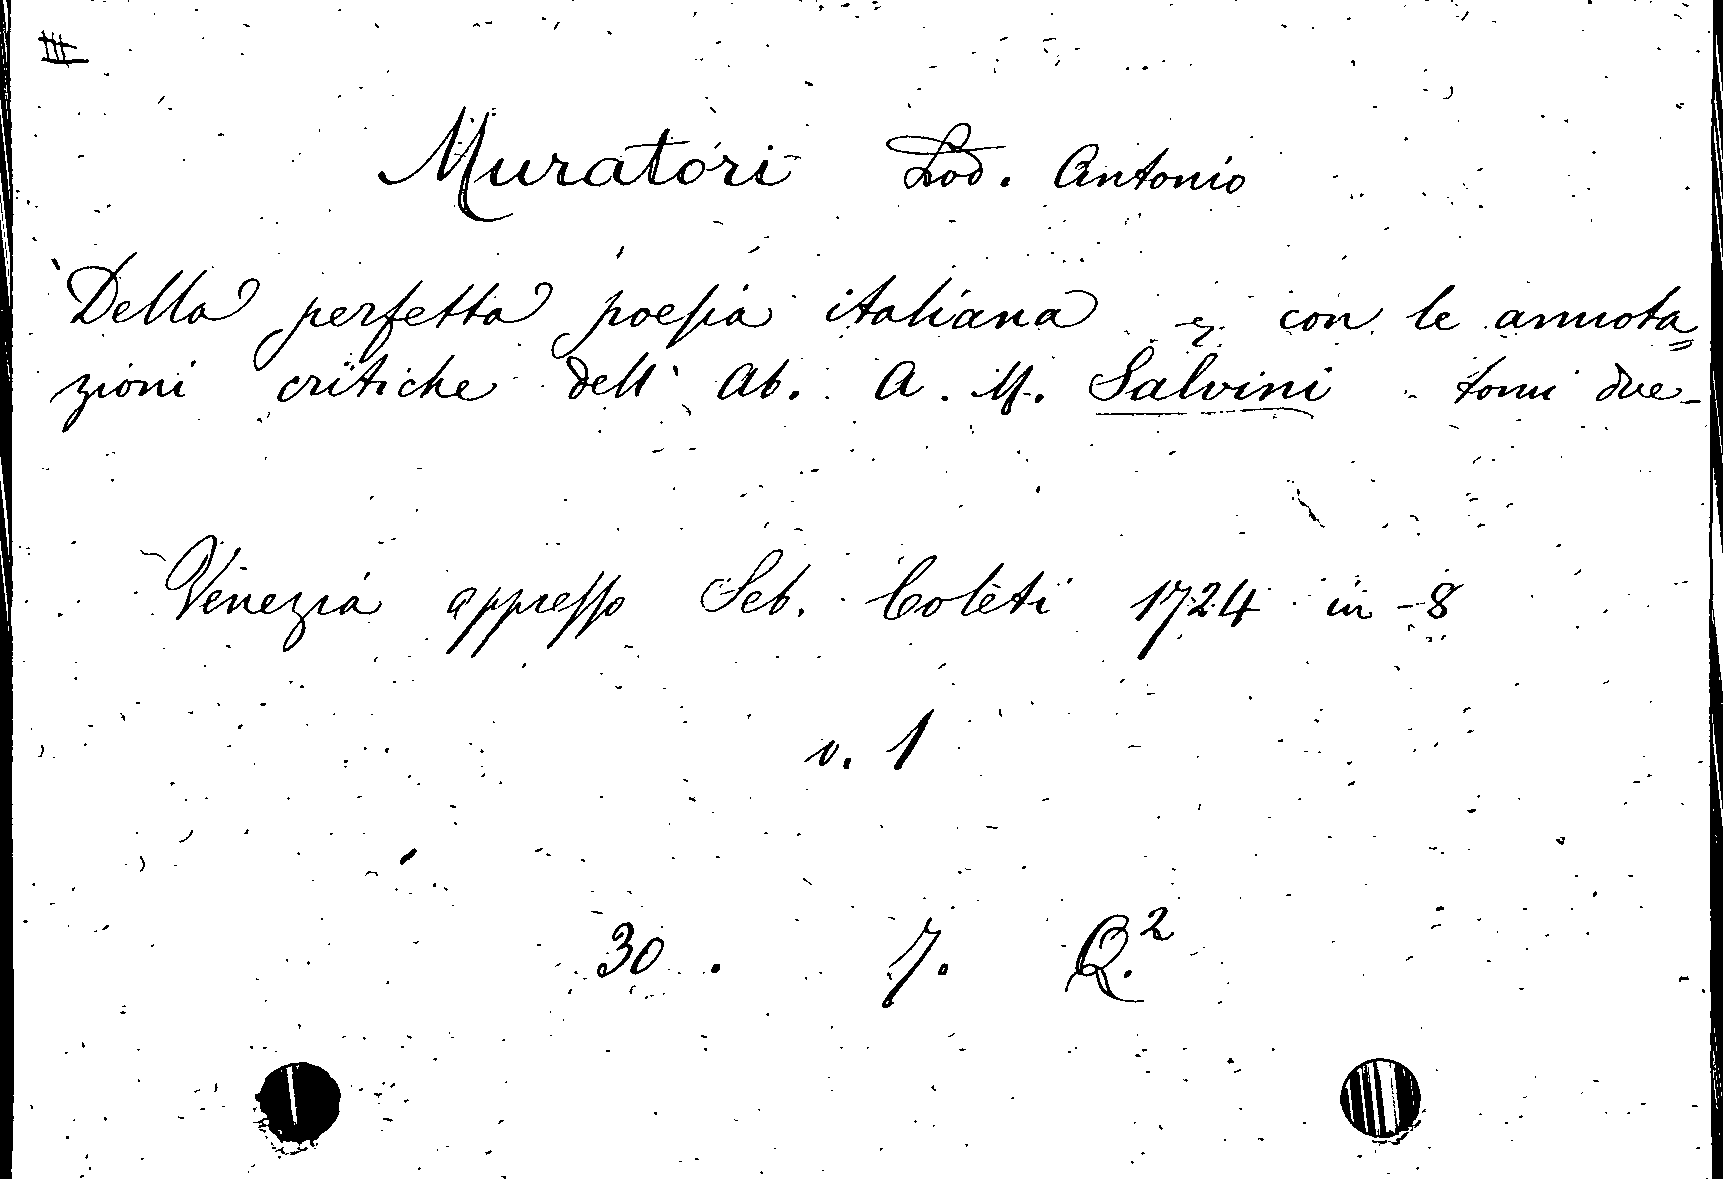 Muratori Lod. Antonio
Della perfetta poesia italiana con le annota=
zioni critiche dell' Ab. A. M. Salvini tomi due-
Venezia appresso Seb. Coleti 1724 in-8
v. 1
30. 7. Q.²